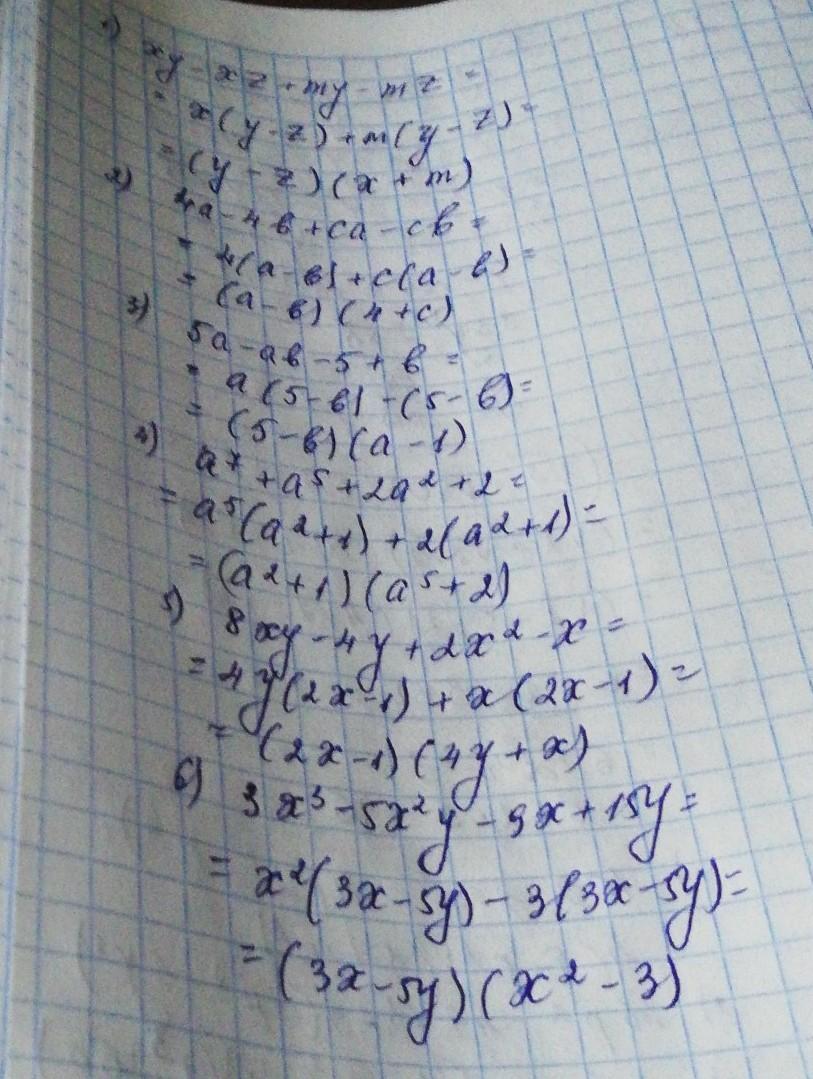 1) xy - xz + my - mz =
= x(y-z) + m(y-z) =
= (y-z)(x+m)
2) 4a - 4b + ca - cb =
= 4(a-b) + c(a-b) =
= (a-b)(4+c)
3) 5a - ab - 5 + b =
= a(5-b) - (5-b) =
= (5-b)(a-1)
4) a⁷ + a⁵ + 2a² + 2 =
= a⁵(a²+1) + 2(a²+1) =
= (a²+1)(a⁵+2)
5) 8xy - 4y + 2x² - x =
= 4y(2x-1) + x(2x-1) =
= (2x-1)(4y+x)
6) 3x³ - 5x²y - 9x + 15y =
= x²(3x-5y) - 3(3x-5y) =
= (3x-5y)(x²-3)